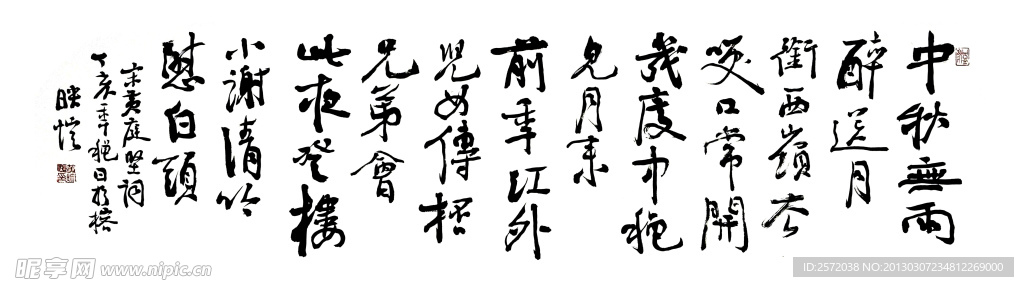 中秋無雨
醉送月
銜西嶺去
笑口常開
幾度中秋
見月來
前年江外
兒女傳杯
兄弟會
此夜登樓
小謝清吟
慰白頭
宋黃庭堅詞
丁亥年秋日於榕
昵享网 www.nipic.cn
ID:2572038 NO:20130307234812269000